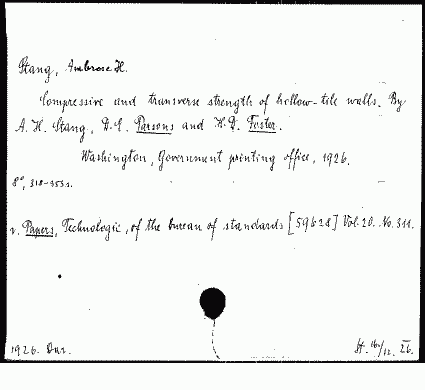 Stang, Ambrose H.
Compressive and transverse strength of hollow-tile walls. By
A. H. Stang, D. E. Parsons and H. D. Foster.
Washington, Government printing office, 1926.
8°, 318-353 s.
v. Papers, Technologic, of the bureau of standards [59628] Vol. 20. No. 311.
1926. Dur.
St. 16/12. 26.